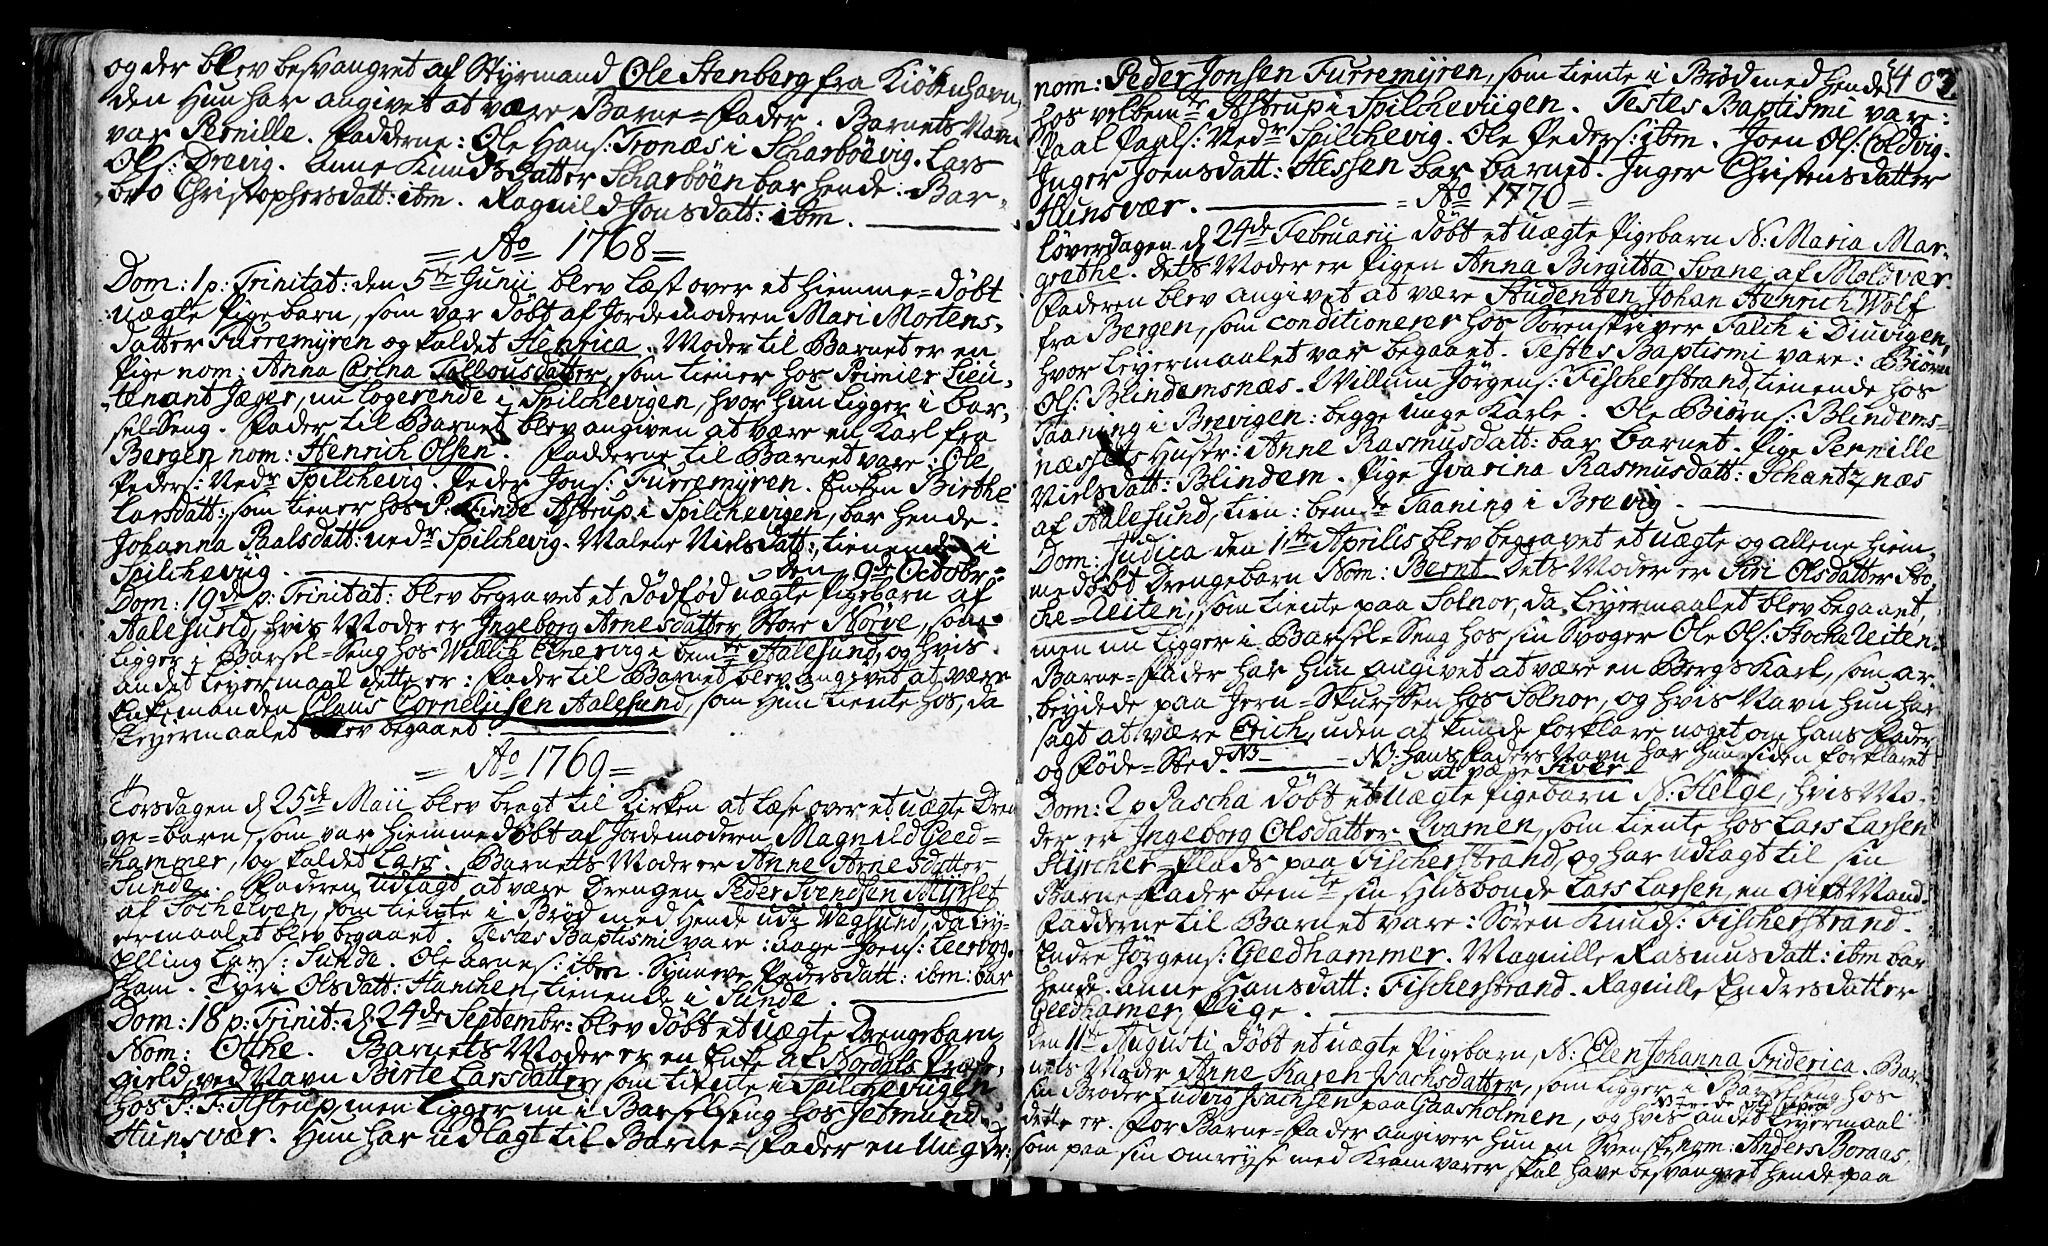 og der blev besvangret af Styrmand Ole Stenberg fra Kiöbenhavn,
den Hun har angivet at være Barne=Fader. Barnets Navn
var Pernille. Fadderne: Ole Hans: Tronæs i Scharböevig. Lars
Ols: Drevig. Anne Knuds Datter Scharböen bar hende. Bar-
bro Christophersdatt: ibm. Ragnild Jonsdatt: ibm.
= Ao 1768 =
Dom: 1 p: Trinitat: den 5te Junii blev læst over et hiemme=döbt
uægte Pigebarn, som var döbt af Jordemoderen Mari Mortens-
datter Furremyren og kaldet Henrica. Moder til Barnet er en
Pige nom: Anna Carina Tallousdatter, som tiener hos Primier Lieu-
tenant Jæger, nu logerende i Spilchevigen, hvor hun ligger i Bar-
sel=Seng. Fader til Barnet blev angiven at være en Karl fra
Bergen nom: Henrich Olsen. Fadderne til Barnet vare: Ole
Peders: Nedr Spilchevig. Peder Jons: Furremyren. Enken Birthe
Larsdatt: som tiener hos P: Finde Astrup i Spilchevigen, bar hende.
Johanna Paalsdatt: nedr Spilchevig. Malene Nielsdatt: tienende i
Spilchevig.
den 9de Octobr:
Dom: 19de p: Trinitat: blev begravet et dödfödt uægte Pigebarn af
Aalesund, hvis Moder er Ingeborg Arnesdatter Store Nörve, som
ligger i Barsel=Seng hos Willich i bemte Aalesund, og hvis
andet Leyermaal dette er: Fader til Barnet blev angivet at være
Enkemanden Claus Corneliusen Aalesund, som Hun tiente hos, da
Leyermaalet blev begaaet.
= Ao 1769 =
Torsdagen d 25de Maii blev bragt til Kirken at læse over et uægte Dren
ge=barn, som var hiemmedöbt af Jordemoderen Magnild Geed=
hammer, og kaldet Lars. Barnetts Moder er Anne Arnesdatter
Sunde. Faderen udlagt at være Drengen Peder Svendsen Myrset
af Sochelven, som tiente i Bröd med hende udi Vegsund, da Ley-
ermaalet blev begaaet. Testes Baptismi vare: Aage Joens: Leervog.
Elling Lars: Sunde. Ole Arnes: ibm. Synneve Pedersdatt: ibm: bar
Ham. Tyri Olsdatt: Hanchen, tienende i Sunde.
Dom: 18 p: Trinit: d 24de Septembr: blev döbt et uægte Drengebarn
Nom: Otthe. Barnets Moder er en Enke af Nordals Præste-
gield, ved Navn Birte Larsdatter, som tiente i Spilchevigen
hos P: F: Astrup, men ligger nu i Barselseng hos Jetmund
Hunsvær. Hun har udlagt til Barne=Fader en Ung Dr:
403
nom: Peder Jonsen Furremyren, som tiente i Bröd med hende
hos velbemte Astrup i Spilchevigen. Testes Baptismi vare:
Paal Paals: Nedr Spilchevig. Ole Peders: ibm. Joen Ols: Coldvig.
Inger Joensdatt: Hessen bar barnet. Inger Christensdatter
Hunsvær.
= Ao 1770 =
Löverdagen d 24de Februarii döbt et uægte Pigebarn N: Maria Mar-
grethe. Dets Moder er Pigen Anna Birgitta Svane af Moldvær.
Faderen blev angivet at være Studenten Johan Henrich Wolf
fra Bergen, som conditionerer hos Sörenskriver Falch i Duvigen,
hvor Leyermaalet var begaaet. Testes Baptismi vare: Biörn
Ols: Blindemsnæs. Willum Jörgens: Fischerstrand, tienende hos
Taaning i Brevigen: begge unge Karle. Ole Biörns: Blindems=
næssets Hustr: Anne Rasmusdatt: bar barnet. Pige Pernille
Nielsdatt: Blindem. Pige Ivarina Rasmusdatt: Schantznæs
af Aalesund, tien: bemte Taaning i Brevig.
Dom: Judica den 1ste Aprilis blev begravet et uægte og allene hiem-
medöbt Drengebarn Nom: Bernt. Dets Moder er Siri Olsdatter Sto-
che=Reiten, som tiente paa Solnor, da Leyermaalet blev begaaet,
men nu ligger i Barsel=Seng hos sin Svoger Ole Ols: Stochereiten.
Barne=Fader har Hun angivet at være en Bergs Karl, som ar-
beydede paa Jern=Skurssen hos Solnor, og hvis Navn hun har
sagt at være Erich, uden at kunde forklare noget om hans Fader
og Föde=Sted. NB NB: hans Faders Navn har hun siden forklaret
at være Siver.
Dom: 2 p Pascha döbt et uægte Pigebarn N: Helge, hvis Mo-
der er Ingeborg Olsdatter Qvamen, som tiente hos Lars Larsen
Styrcher=Plads paa Fischerstrand, og har udlagt til sin
Barne=Fader bemte sin Husbonde Lars Larsen, en Gift Mand.
Fadderne til Barnet vare: Sören Knuds: Fischerstrand.
Endre Jörgens: Geedhammer. Magnille Rasmusdatt: ibm bar
hende. Anne Hansdatt: Fischerstrand. Ragnille Endresdatter
Geedhamer, Pige.
Den 11te Augusti döbt et uægte Pigebarn, N: Elen Johanna Friderica. Bar-
nets Moder Anne Karen Isachsdatter, som ligger i Barselseng hos
sin Broder Ludvig Isachsen paa Gaasholmen, og hvis andet Leyermaal
dette er. For Barne=Fader angiver hun en Svensk, nom: Anders Boraas,
som paa sin omreyse med Kramvarer skal have besvangret hende paa